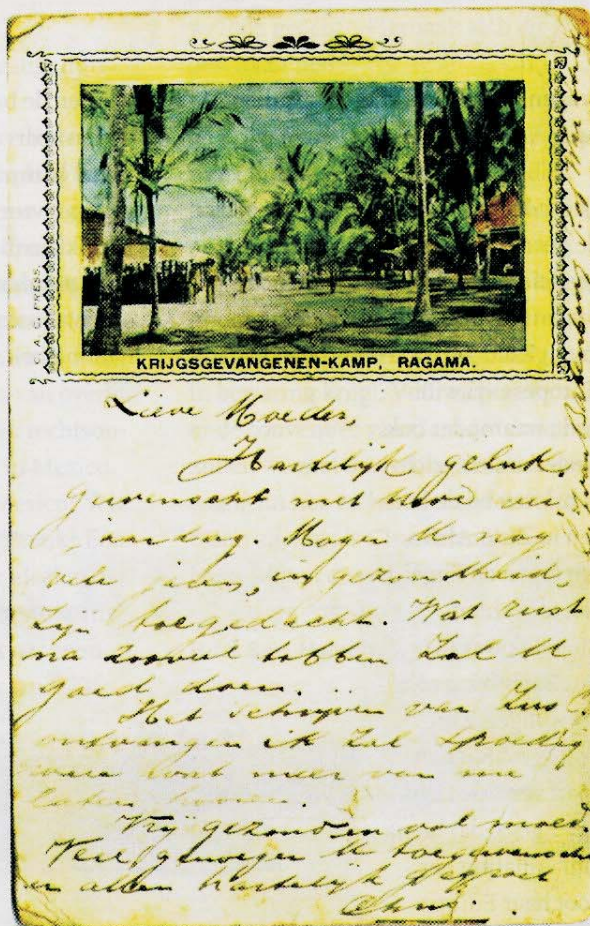 C. A. C. PRESS.
KRIJGSGEVANGENEN-KAMP, RAGAMA.
Lieve Moeder,
Hartelijk geluk.
gewenscht met Uwe ver-
jaardag. Mogen U nog
vele jaren, in gezondheid,
zijn toegedacht. Wat rust
na zooveel tobben zal U
goed doen.
Het schrijven van Zus C.
ontvangen ik zal spoedig
wat meer van me
laten hooren.
Vrij gezond en vol moed.
Veel genoegen U toegewenscht
en allen hartelijk gegroet